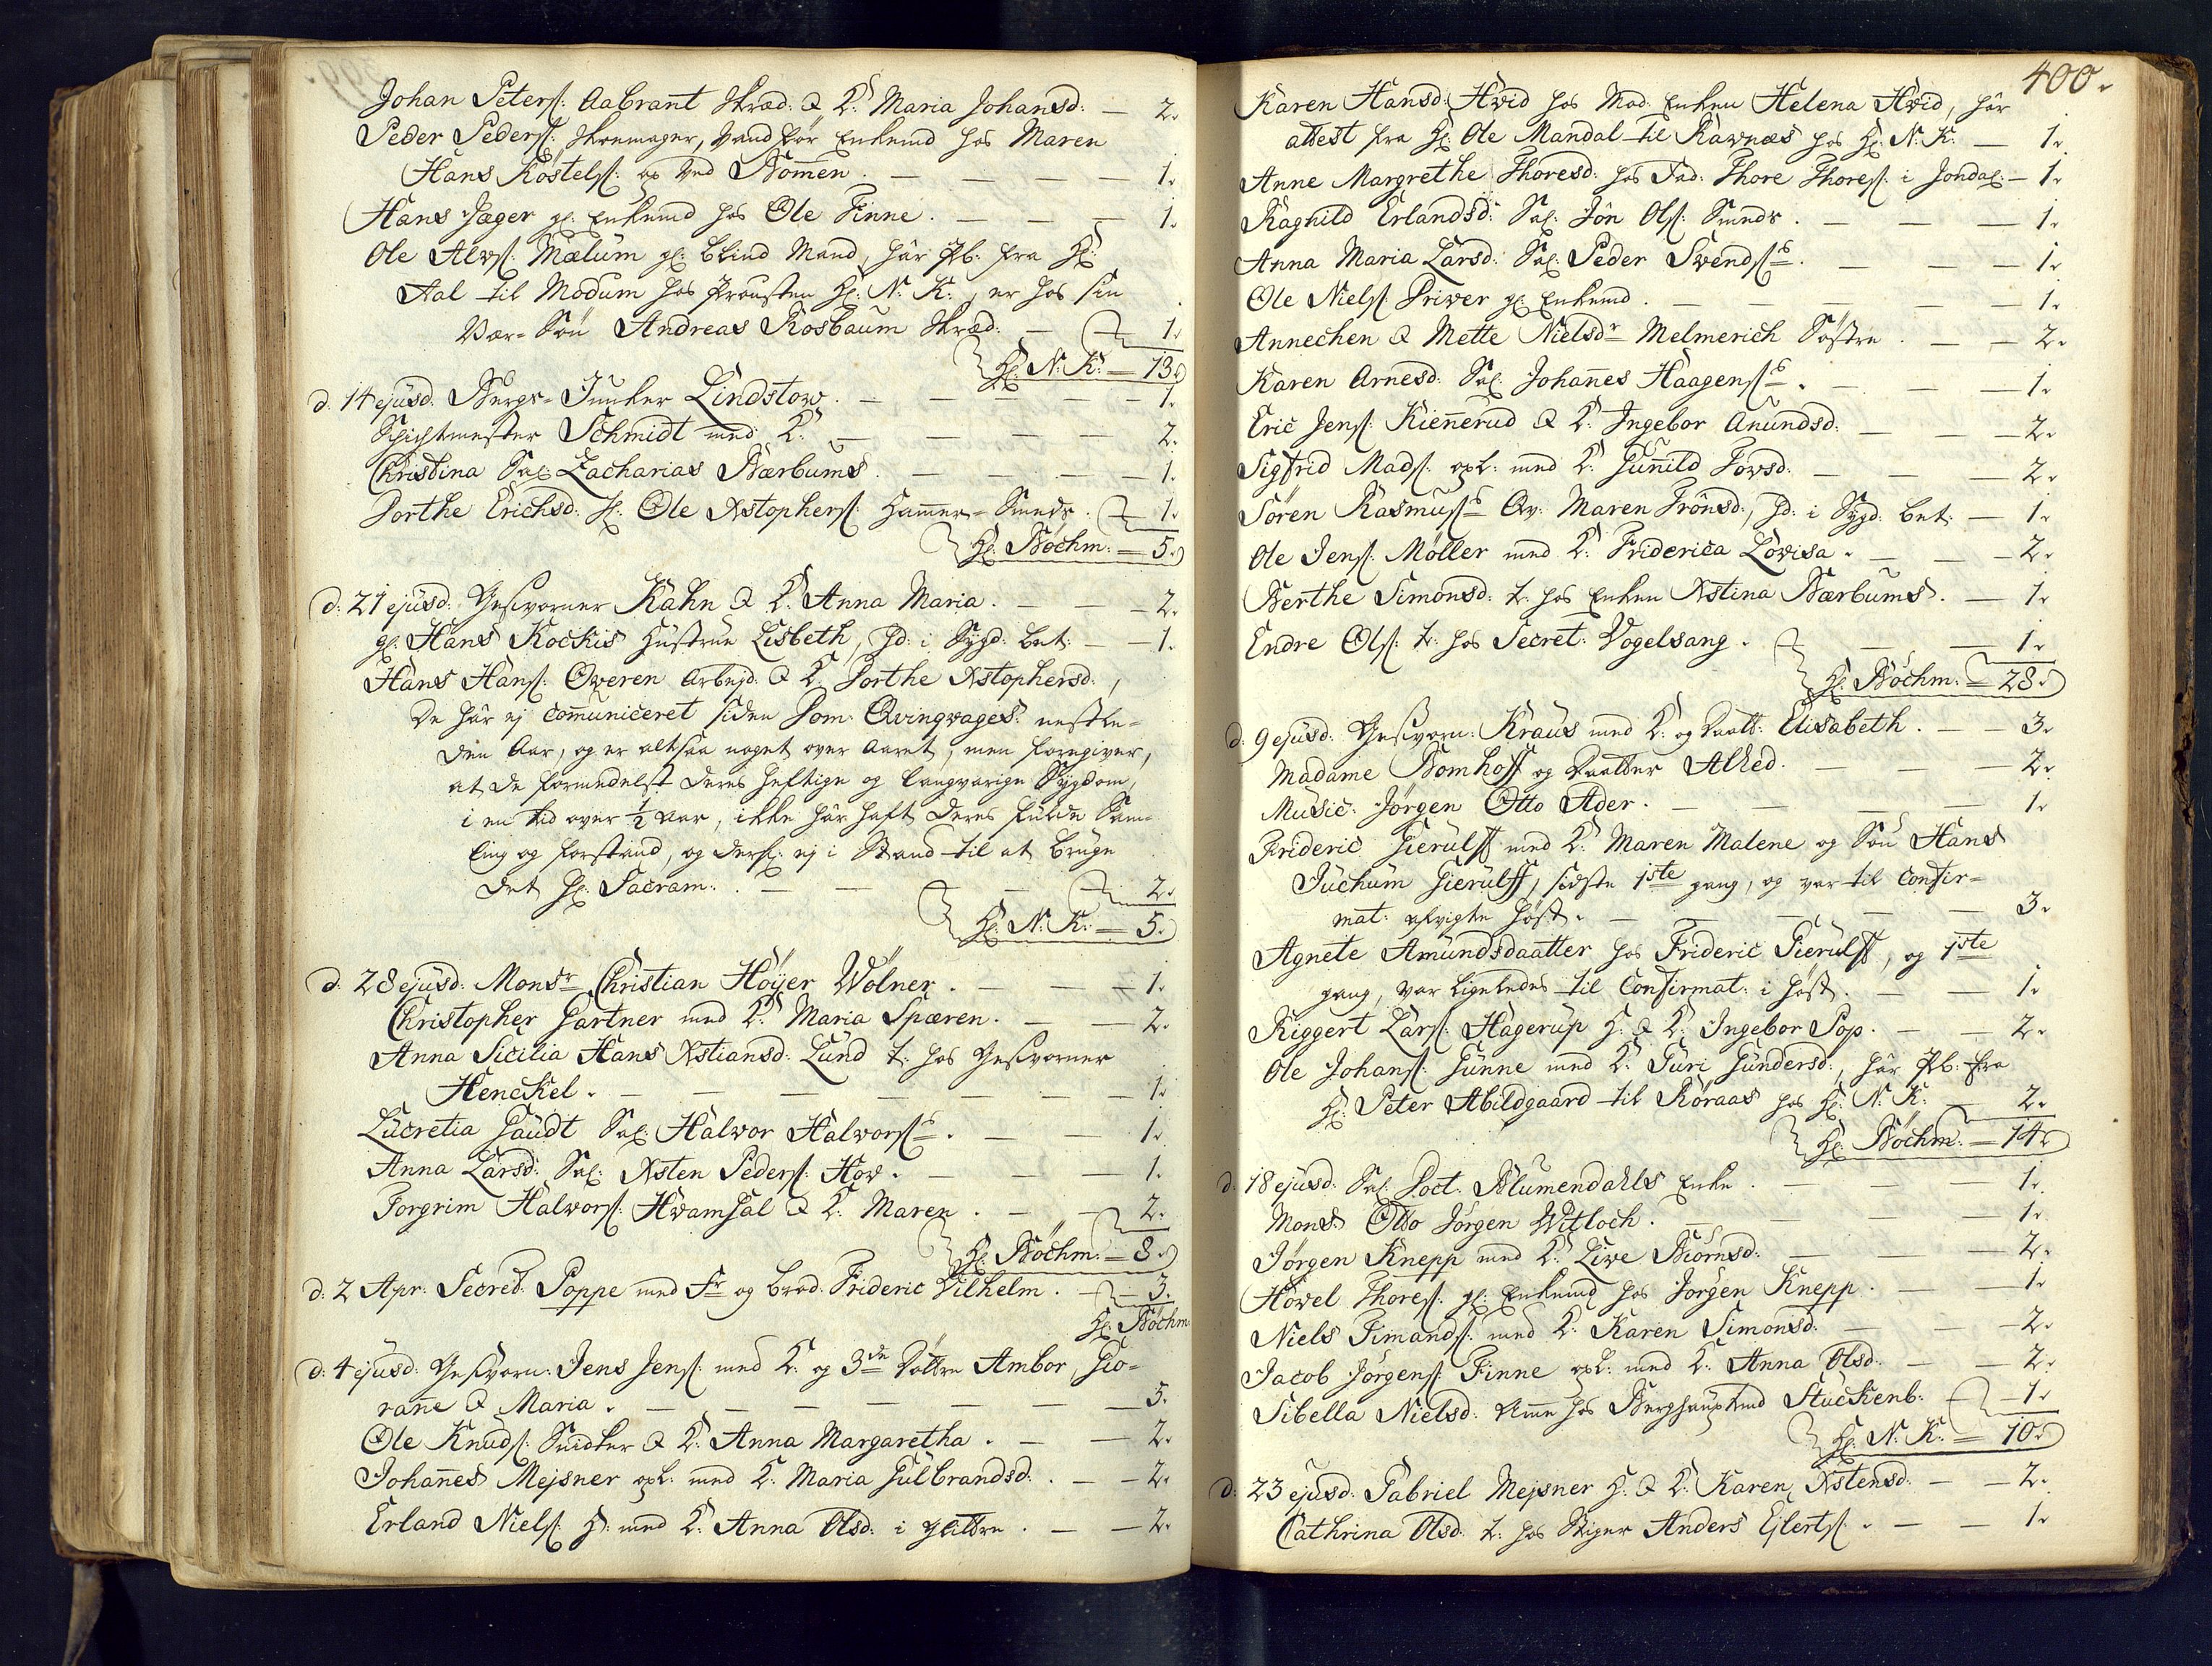 Johan Peters: Aabrant Skræd: & K: Maria Johansd: — 2.
Peder Peders: Skoemager, Vandför Enkemd hos Maren
Hans Köstels: op ved Bommen. — 1.
Hans Jæger gl: Enkemd hos Ole Finne. — 1.
Ole Alvs: Mælum gl: blind Mand, har Pb: fra Hr:
Aal til Modum hos Prousten Hr: N: K:, er hos sin
Vær-Sön Andreas Rosbaum Skræd: — 1.
Hr: N: K: = 13.
d: 14 ejusd: Bergs-Junker Lindstow. — 1.
Schichtmester Schmidt med K: — 2.
Christina Sal: Zacharias Bærbums. — 1.
Dorthe Erichsd: Ole Xstophers: Hammer-Smeds. — 1.
Hr: Böchm: = 5.
d: 21 ejusd: Geschvorner Kahn & K: Anna Maria. — 2.
gl: Hans Kockis Hustrue Lisbeth, Hd: i Sygd: bet: — 1.
Hans Hans: Overen Arbejd: & K: Dorthe Xstophersd:,
De har ej communiceret siden Dom: Qvinqvages: nestle-
den Aar, og er altsaa noget over Aaret, men foregiver,
at de formedelst deres heftige og langvarige Sygdom,
i en tid over 1/2 Aar, ikke har haft deres fulde Sam-
ling og forstand, og ders: ej i Stand til at bruge
det Hl: Sacram: — 2.
Hr: N: K: = 5.
d: 28 ejusd: Monsr Christian Höyer Wölner. — 1.
Christopher Gartner med K: Maria Spæren. — 2.
Anna Sicilia Hans Xstiansd: Lund t: hos Geschvorner
Henckel. — 1.
Lucretia Gaudt Sal: Halvor Halvors: — 1.
Anna Larsd: Sal: Xsten Peders: Hov. — 1.
Torgrim Halvors: Hvamsal & K: Maren. — 2.
Hr: Böchm: = 8.
d: 2 Apr: Secret: Poppe med Fr og brod: Frideric Vilhelm. — 3.
Hr: Böchm
d: 4 ejusd: Geschvorn: Jens Jens: med K: og 3de Döttre Ambor, Gio-
ranne & Maria. — 5.
Ole Knuds: Snidker & K: Anna Margaretha. — 2.
Johannes Mejsner opl: med K: Maria Gulbrandsd: — 2.
Erland Niels: H: med K: Anna Olsd: i Glittre. — 2.
400.
Karen Hansd: Hvid hos Mad: Enken Helena Hvid, har
attest fra Hr: Ole Mandal til Ravnæs hos Hr: N: K: — 1.
Anne Margrethe Thoresd: hos Fad: Thore Thores: i Jondal: — 1.
Ragnild Erlandsd: Sal: Jön Ols: Smeds. — 1.
Anna Maria Larsd: Sal: Peder Svends: — 1.
Ole Niels: Priwer gl: Enkemd. — 1.
Annechen & Mette Nielsdr Melmerich Söstre. — 2.
Karen Arnesd: Sal: Johannes Haagens: — 1.
Eric Jens: Kiennerud & K: Ingebor Anundsd: — 2.
Sigfrid Mads: opl: med K: Gunnild Tovsd: — 2.
Sören Rasmus: Qv: Maren Trönsd:, Hd: i Sygd: bet: — 1.
Ole Jens: Möller med K: Friderica Lovisa. — 2.
Berthe Simonsd: t: hos Enken Xstina Bærbums. — 1.
Endre Ols: t: hos Secret: Vogelsang. — 1.
Hr: Böchm: = 28.
d: 9 ejusd: Geschvorn: Kraus med K: og Daatt: Elisabeth. — 3.
Madame Bomhoff og Daatter Alhed. — 2.
Music: Jörgen Otto Ader. — 1.
Frideric Gierulff med K: Maren Malene og Sön Hans
Juchum Gierulff, sidste 1ste gang, og var til Confir-
mat: afvigte Höst. — 3.
Agnete Amundsdaatter hos Frideric Gierulff, og 1ste
gang, var ligeledes til Confirmat: i Höst. — 1.
Riggert Lars: Hagerup H: & K: Ingebor Pop. — 2.
Ole Johans: Gunne med K: Turi Gundersd:, har Pb: fra
Hr: Peter Abildgaard til Röraas hos Hr: N: K: — 2.
Hr: Böchm: = 14.
d: 18 ejusd: Sal: Doct: Blumendahls Enke. — 1.
Monsr Otto Jörgen Witloch. — 1.
Jörgen Knepp med K: Live Biörnsd: — 2.
Hövel Thores: gl: Enkemd hos Jörgen Knepp. — 1.
Niels Timands: med K: Karen Simonsd: — 2.
Jacob Jörgens: Finne opl: med K: Anna Olsd: — 2.
Sibella Nielsd: Amme hos Berghauptmd Stuckenb: — 1.
Hr: N: K: = 10.
d: 23 ejusd: Gabriel Mejsner H: & K: Karen Xstensd: — 2.
Cathrina Olsd: t: hos Stiger Anders Ejlerts: — 1.